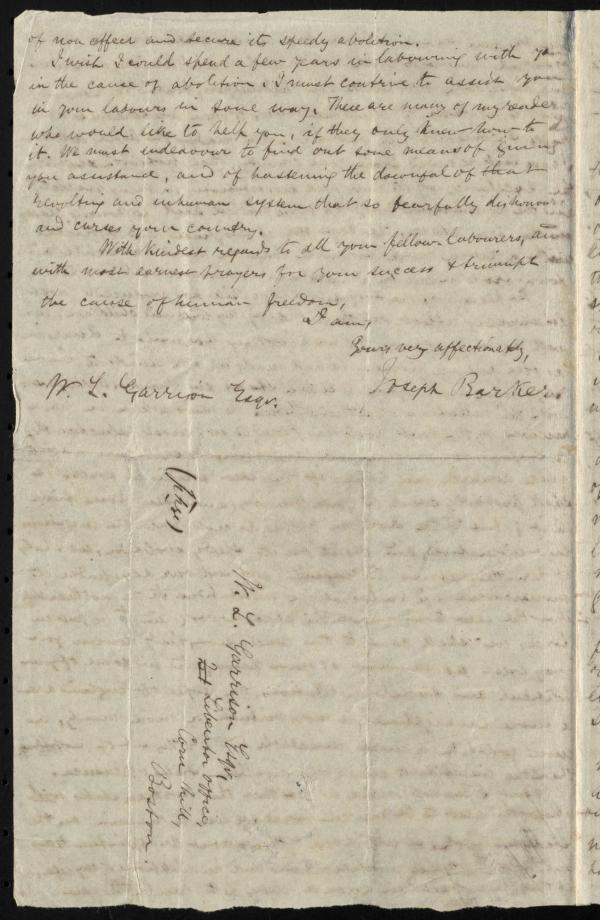 of non effect and secure its speedy abolition.
I wish I could spend a few years in labouring with you
in the cause of abolition. I must contrive to assist you
in your labours in some way. There are many of my reader
who would like to help you, if they only knew how to d
it. We must endeavour to find out some means of giving
you assistance, and of hastening the downfal of that
revolting and inhuman system that so fearfully dishonou
and curses your country.
With kindest regards to all your fellow-labourers, an
with most earnest prayers for your success & triumph
the cause of human freedom,
I am,
Yours very affectionately,
Joseph Barker
W. L. Garrison Esqr.
W. L. Garrison Esqr,
Liberator office,
Corn hill,
Boston.